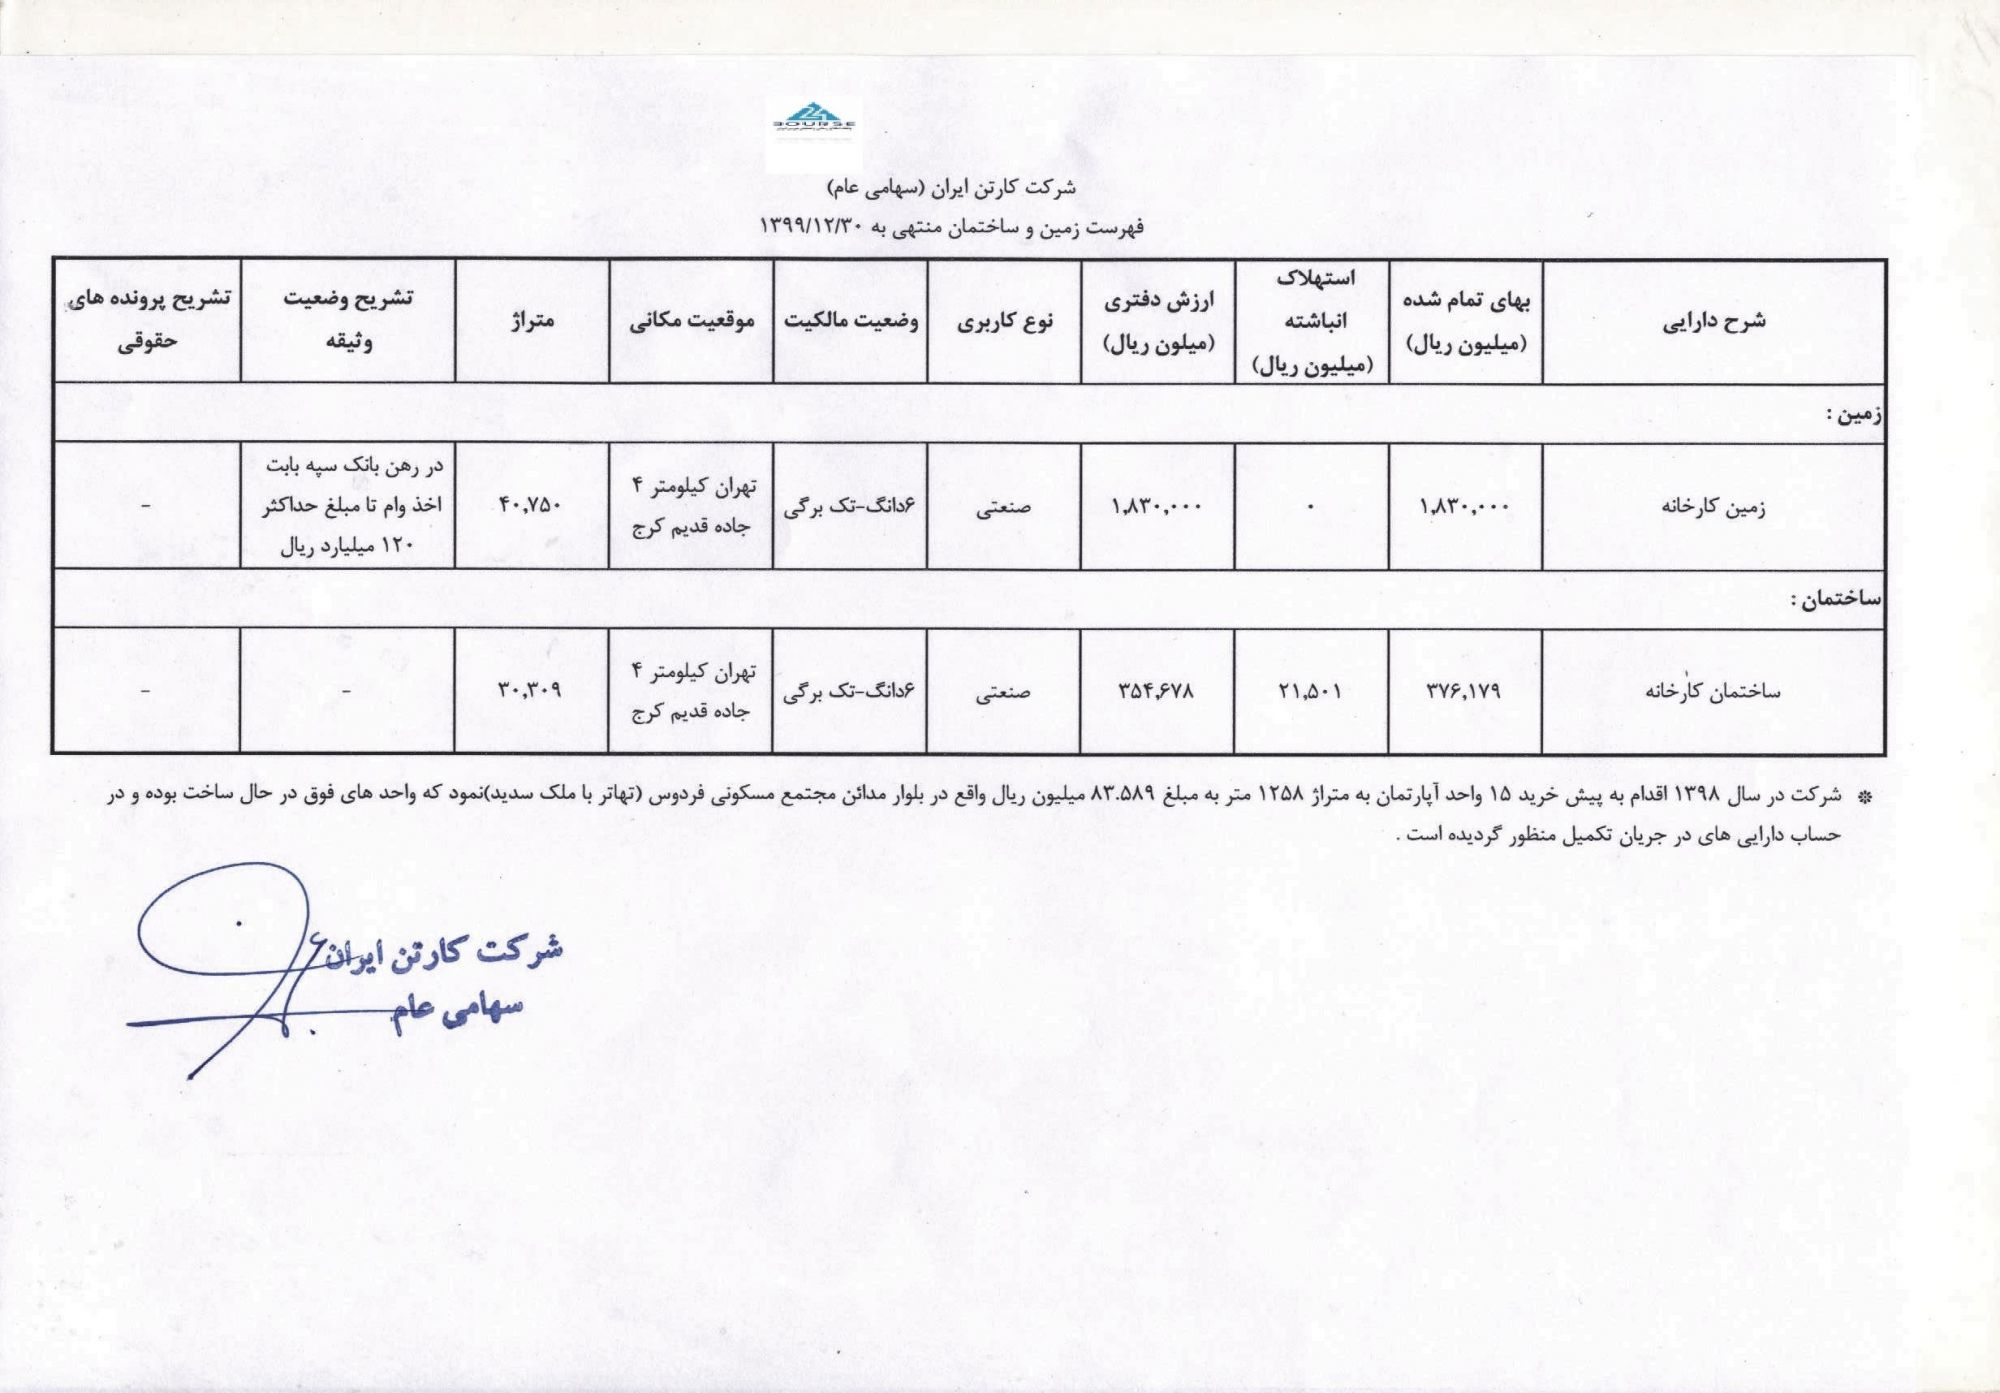 BOURSE
شرکت کارتن ایران (سهامی عام)
فهرست زمین و ساختمان منتهی به ۱۳۹۹/۱۲/۳۰
شرح دارایی
بهای تمام شده
(میلیون ریال)
استهلاک
انباشته
(میلیون ریال)
ارزش دفتری
(میلون ریال)
نوع کاربری
وضعیت مالکیت
موقعیت مکانی
متراژ
تشریح وضعیت
وثیقه
تشریح پرونده های
حقوقی
زمین :
زمین کارخانه
۱,۸۳۰,۰۰۰
۰
۱,۸۳۰,۰۰۰
صنعتی
۶دانگ-تک برگی
تهران کیلومتر ۴
جاده قدیم کرج
۴۰,۷۵۰
در رهن بانک سپه بابت
اخذ وام تا مبلغ حداکثر
۱۲۰ میلیارد ریال
-
ساختمان :
ساختمان کارخانه
۳۷۶,۱۷۹
۲۱,۵۰۱
۳۵۴,۶۷۸
صنعتی
۶دانگ-تک برگی
تهران کیلومتر ۴
جاده قدیم کرج
۳۰,۳۰۹
-
-
❇ شرکت در سال ۱۳۹۸ اقدام به پیش خرید ۱۵ واحد آپارتمان به متراژ ۱۲۵۸ متر به مبلغ ۸۳.۵۸۹ میلیون ریال واقع در بلوار مدائن مجتمع مسکونی فردوس (تهاتر با ملک سدید)نمود که واحد های فوق در حال ساخت بوده و در
حساب دارایی های در جریان تکمیل منظور گردیده است .
شرکت کارتن ایران
سهامی عام